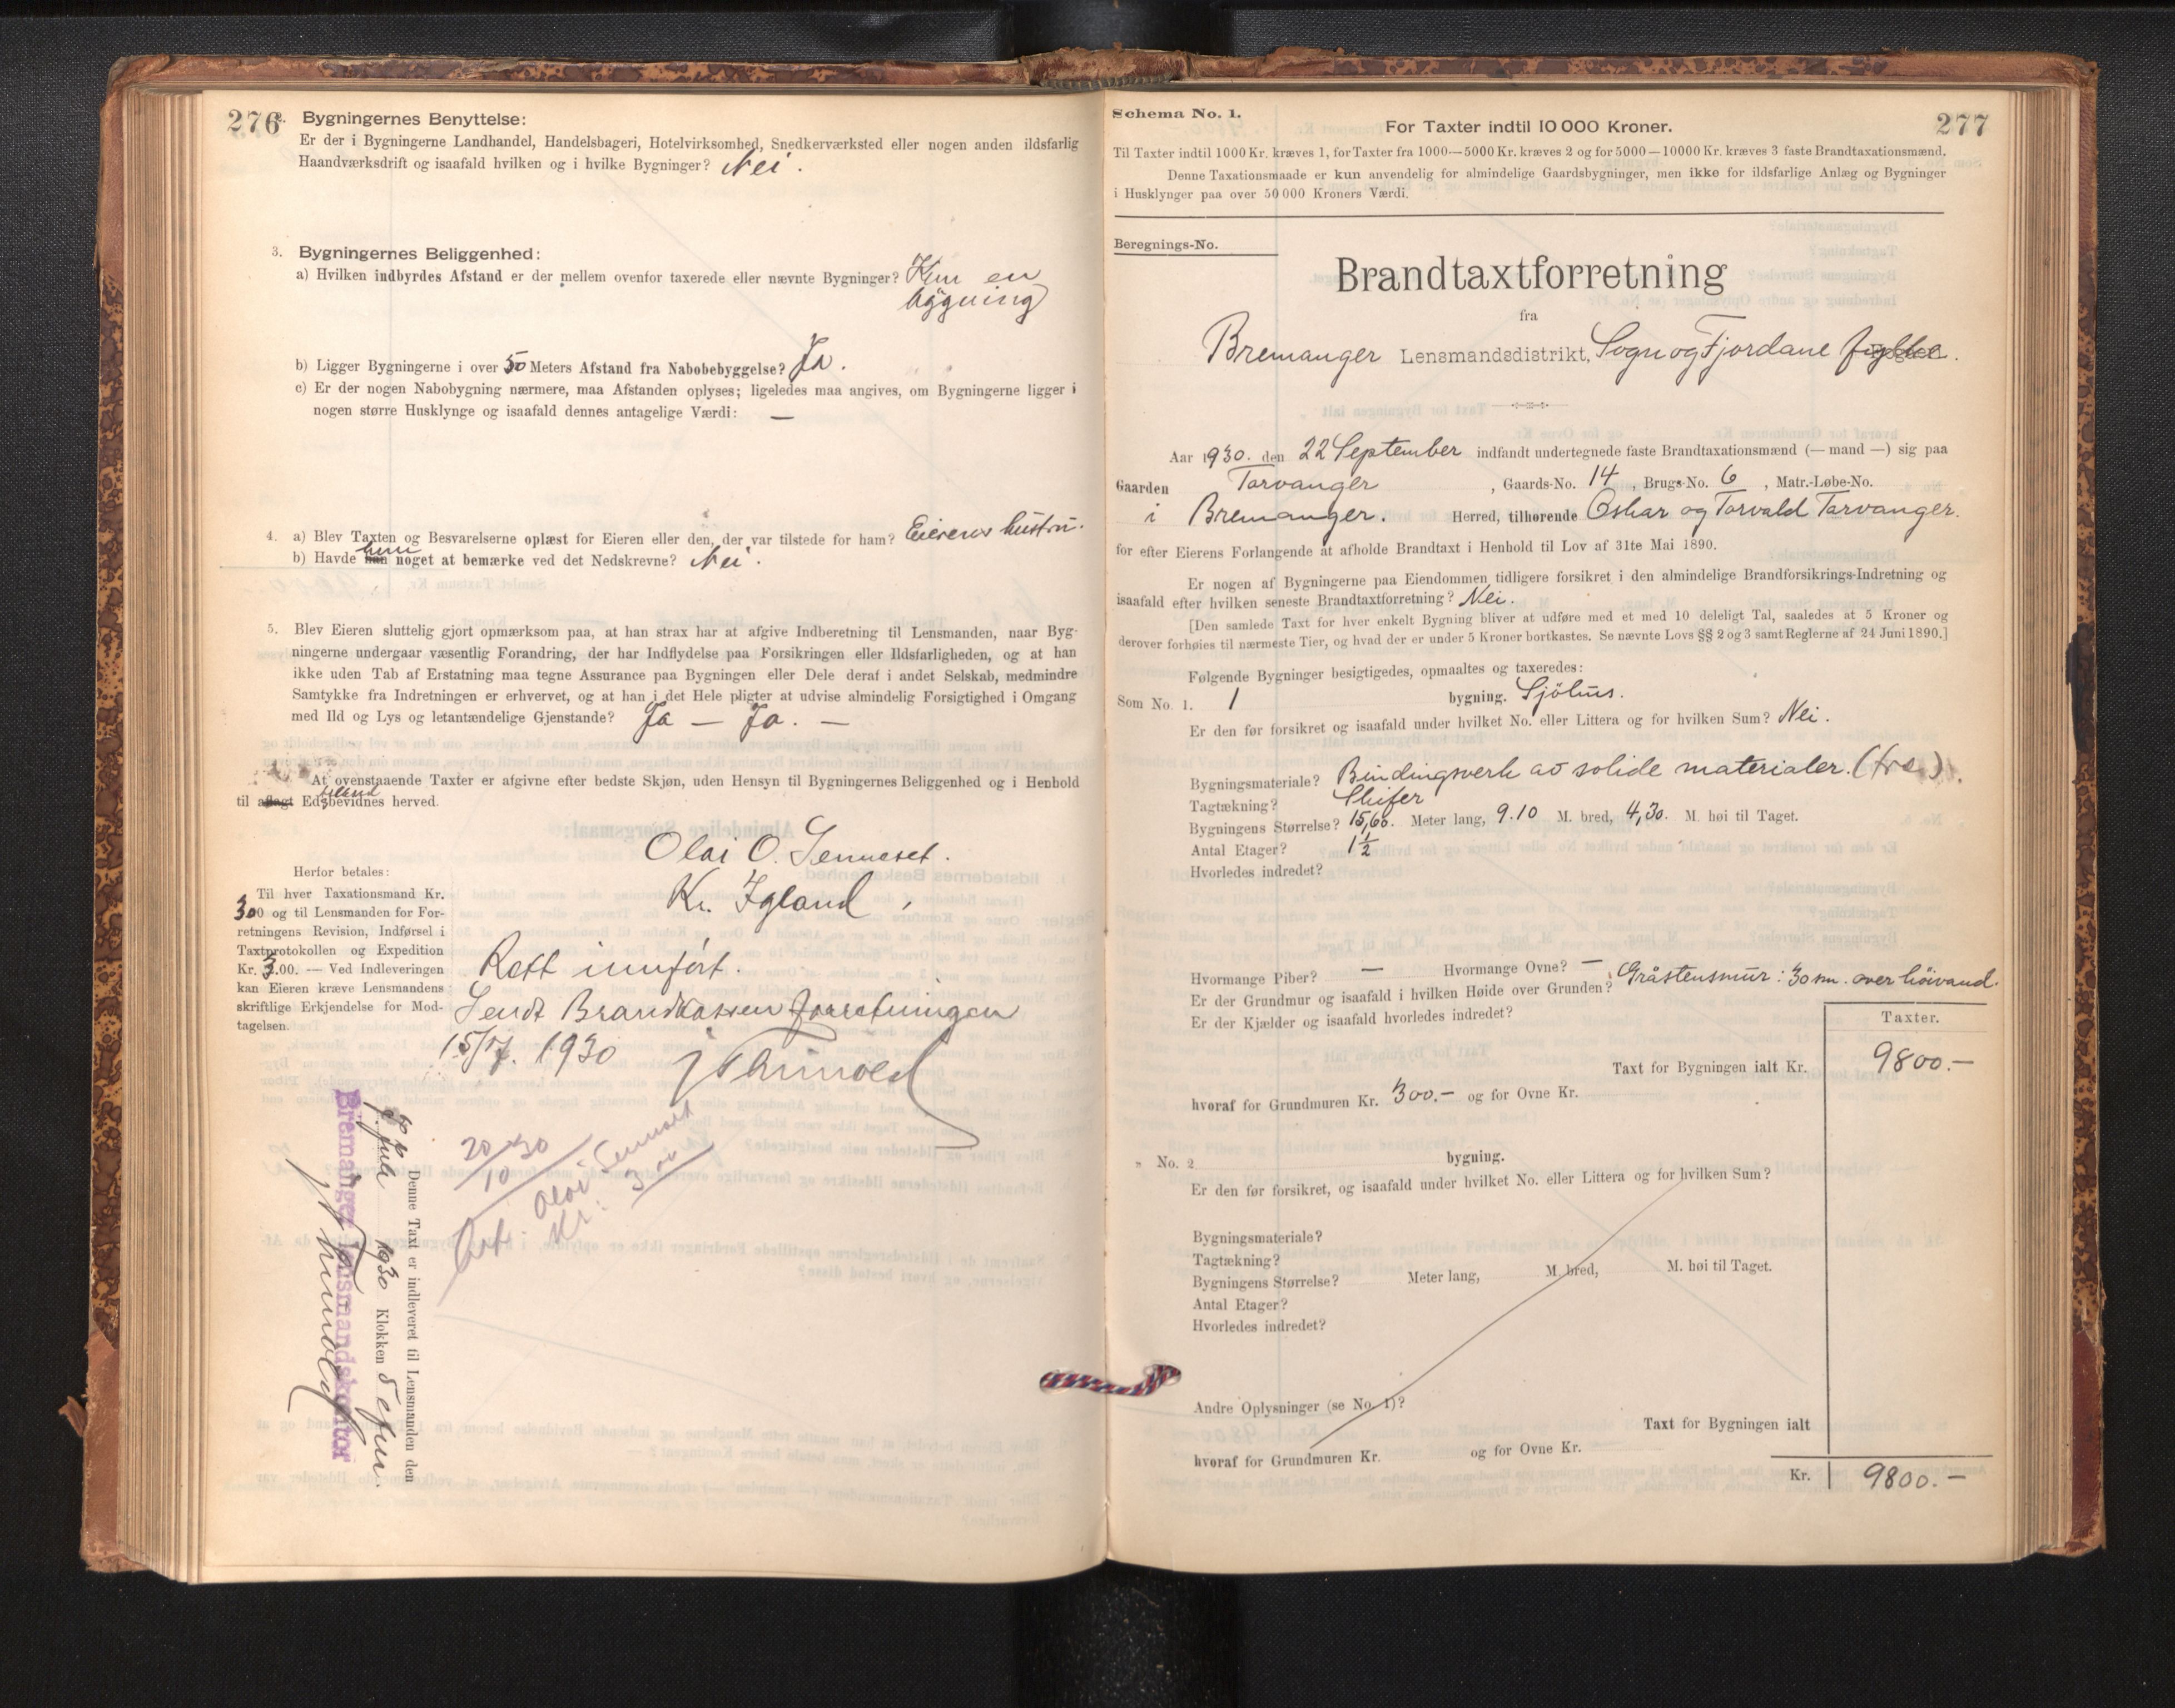 276
2. Bygningernes Benyttelse:
Er der i Bygningerne Landhandel, Handelsbageri, Hotelvirksomhed, Snedkerværksted eller nogen anden ildsfarlig
Haandværksdrift og isaafald hvilken og i hvilke Bygninger? Nei.
3. Bygningernes Beliggenhed:
a) Hvilken indbyrdes Afstand er der mellem ovenfor taxerede eller nævnte Bygninger? Kun en
bygning
b) Ligger Bygningerne i over 50 Meters Afstand fra Nabobebyggelse? Ja.
c) Er der nogen Nabobygning nærmere, maa Afstanden oplyses; ligeledes maa angives, om Bygningerne ligger i
nogen større Husklynge og isaafald dennes antagelige Værdi: —
4. a) Blev Taxten og Besvarelserne oplæst for Eieren eller den, der var tilstede for ham? Eierens hustru.
b) Havde han hun noget at bemærke ved det Nedskrevne? Nei.
5. Blev Eieren sluttelig gjort opmærksom paa, at han strax har at afgive Indberetning til Lensmanden, naar Byg-
ningerne undergaar væsentlig Forandring, der har Indflydelse paa Forsikringen eller Ildsfarligheden, og at han
ikke uden Tab af Erstatning maa tegne Assurance paa Bygningen eller Dele deraf i andet Selskab, medmindre
Samtykke fra Indretningen er erhvervet, og at han i det Hele pligter at udvise almindelig Forsigtighed i Omgang
med Ild og Lys og letantændelige Gjenstande? Ja — Ja. —
At ovenstaaende Taxter er afgivne efter bedste Skjøn, uden Hensyn til Bygningernes Beliggenhed og i Henhold
til aflagt Ed, bevidnes herved.
Olai O. Senneset.
Kr. Igland
Herfor betales:
Til hver Taxationsmand Kr.
3 00 og til Lensmanden for For-
retningens Revision, Indførsel i
Taxtprotokollen og Expedition
Kr. 3.00. — Ved Indleveringen
kan Eieren kræve Lensmandens
skriftlige Erkjendelse for Mod-
tagelsen.
Rett innført.
Sendt Brandkassen forretningen
15/7. 1930
Denne Taxt er indleveret til Lensmanden den
8. Juli 1930 Klokken 5 efm.
Bremanger lensmandskontor
20/10 30
Olai Senneset
Kr. 3 00
277
Schema No. 1.
For Taxter indtil 10 000 Kroner.
Til Taxter indtil 1000 Kr. kræves 1, for Taxter fra 1000—5000 Kr. kræves 2 og for 5000—10000 Kr. kræves 3 faste Brandtaxationsmænd.
Denne Taxationsmaade er kun anvendelig for almindelige Gaardsbygninger, men ikke for ildsfarlige Anlæg og Bygninger
i Husklynger paa over 50 000 Kroners Værdi.
Beregnings-No.
Brandtaxtforretning
fra
Bremanger Lensmandsdistrikt, Sogn og Fjordane fylke.
Aar 1930. den 22 September indfandt undertegnede faste Brandtaxationsmænd (— mand —) sig paa
Gaarden Torvanger, Gaards-No. 14, Brugs-No. 6, Matr.-Løbe-No.
i Bremanger. Herred, tilhørende Oskar og Torvald Torvanger.
for efter Eierens Forlangende at afholde Brandtaxt i Henhold til Lov af 31te Mai 1890.
Er nogen af Bygningerne paa Eiendommen tidligere forsikret i den almindelige Brandforsikrings-Indretning og
isaafald efter hvilken seneste Brandtaxtforretning? Nei.
[Den samlede Taxt for hver enkelt Bygning bliver at udføre med et med 10 deleligt Tal, saaledes at 5 Kroner og
derover forhøies til nærmeste Tier, og hvad der er under 5 Kroner bortkastes. Se nævnte Lovs §§ 2 og 3 samt Reglerne af 24 Juni 1890.]
Følgende Bygninger besigtigedes, opmaaltes og taxeredes:
Som No. 1. 1 bygning. Sjöhus.
Er den før forsikret og isaafald under hvilket No. eller Littera og for hvilken Sum? Nei.
Bygningsmateriale? Bindingsverk av solide materialer. (tre).
Tagtækning? Skifer
Bygningens Størrelse? 15,60. Meter lang, 9.10 M. bred, 4,30. M. høi til Taget.
Antal Etager? 1½
Hvorledes indredet?
Hvormange Piber? — Hvormange Ovne? —
Er der Grundmur og isaafald i hvilken Høide over Grunden? Gråstensmur: 30 sm. over höivand.
Er der Kjælder og isaafald hvorledes indredet?
Taxter.
Taxt for Bygningen ialt Kr. 9800.—
hvoraf for Grundmuren Kr. 300.— og for Ovne Kr.
„ No. 2 bygning.
Er den før forsikret, og isaafald under hvilket No. eller Littera og for hvilken Sum?
Bygningsmateriale?
Tagtækning?
Bygningens Størrelse? Meter lang, M. bred, M. høi til Taget.
Antal Etager?
Hvorledes indredet?
Andre Oplysninger (se No. 1)?
Taxt for Bygningen ialt
hvoraf for Grundmuren Kr. og for Ovne Kr.
Kr. 9800.—